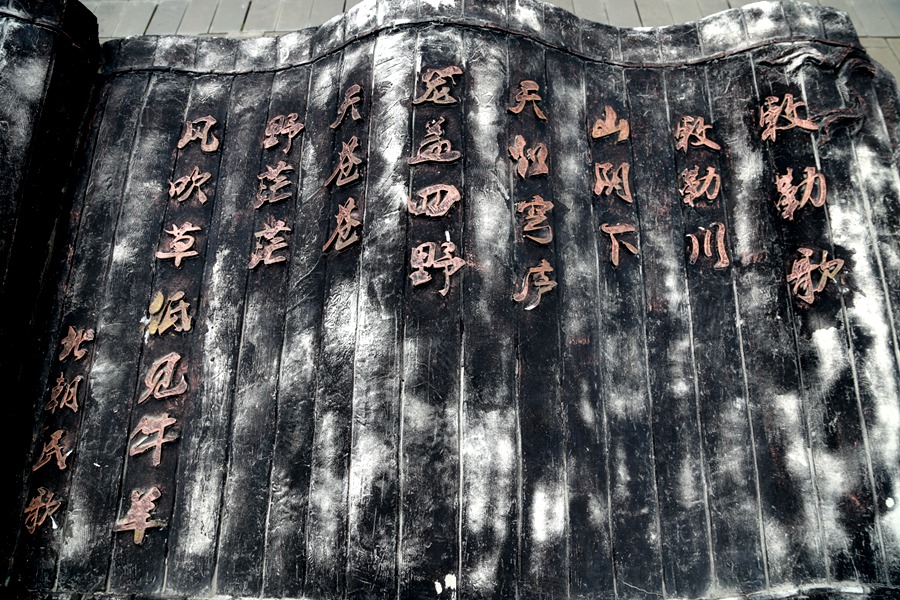 敕勒歌
敕勒川
山阴下
天似穹庐
笼盖四野
天苍苍
野茫茫
风吹草低见牛羊
北朝民歌